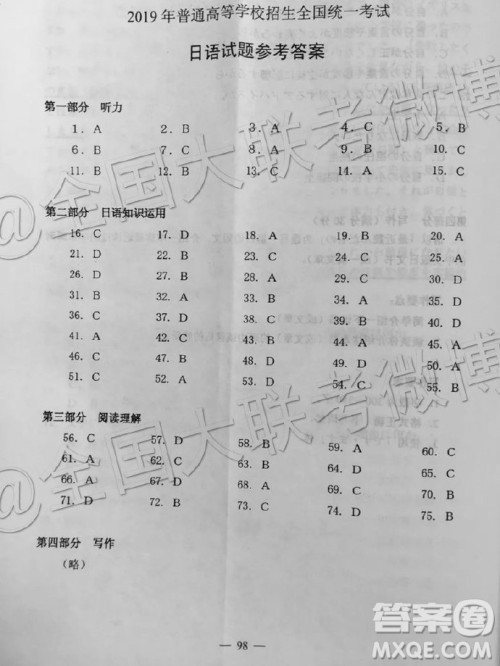 2019 年普通高等学校招生全国统一考试
日语试题参考答案
第一部分 听力
1. A 2. C 3. A 4. C 5. B
6. B 7. B 8. A 9. C 10. B
11. B 12. B 13. C 14. C 15. A
第二部分 日语知识运用
16. C 17. D 18. A 19. B 20. A
21. D 22. B 23. A 24. C 25. A
26. D 27. D 28. B 29. D 30. B
31. B 32. A 33. C 34. D 35. D
36. C 37. D 38. D 39. B 40. B
41. A 42. B 43. B 44. C 45. A
46. C 47. C 48. A 49. D 50. C
51. C 52. A 53. C 54. A 55. B
第三部分 阅读理解
56. C 57. D 58. B 59. D 60. C
61. A 62. C 63. B 64. A 65. B
66. A 67. D 68. C 69. C 70. B
71. D 72. B 73. A 74. D 75. B
第四部分 写作
(略)
— 98 —
@全国大联考微博
@全国大联考微博
答案圈
MXQE.COM